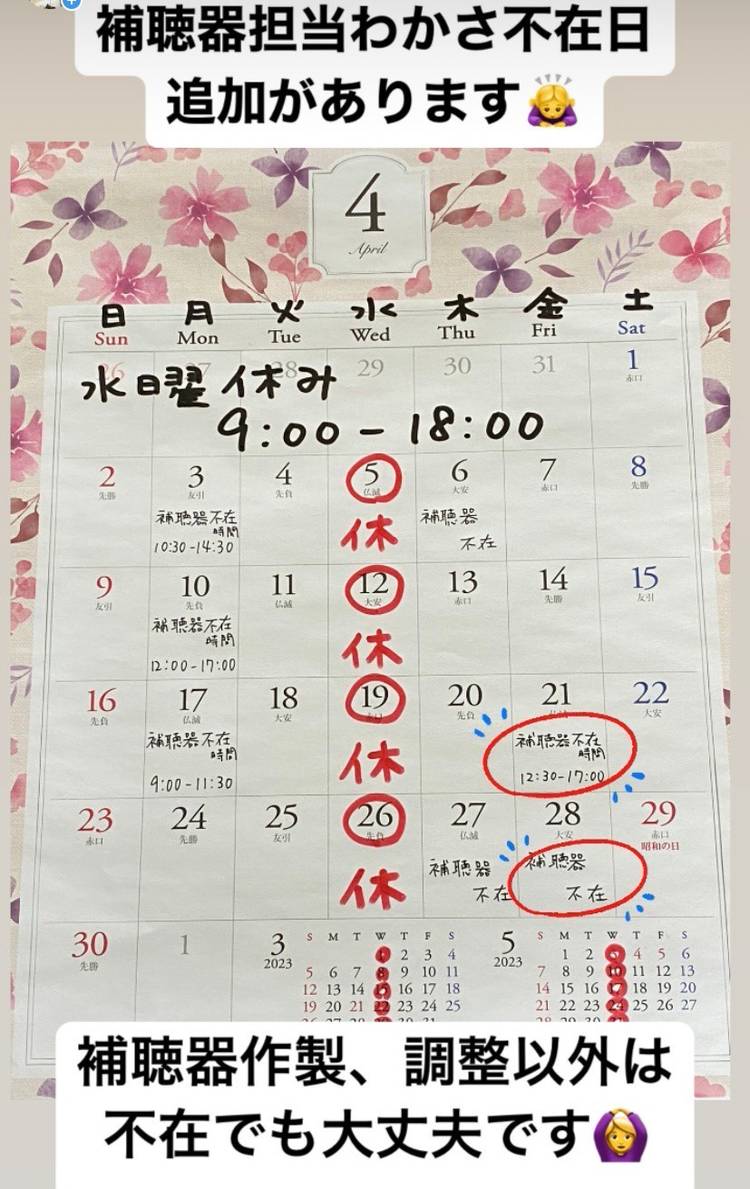 補聴器担当わかさ不在日
追加があります🙇‍♀️
4
April
日 月 火 水 木 金 土
Sun Mon Tue Wed Thu Fri Sat
26 27 28 29 30 31 1
赤口
水曜日休み
9:00-18:00
2 3 4 5 6 7 8
先勝 友引 先負 仏滅 大安 赤口 先勝
補聴器不在
時間
10:30-14:30
休
補聴器
不在
9 10 11 12 13 14 15
友引 先負 仏滅 大安 赤口 先勝 友引
補聴器不在
時間
12:00-17:00
休
16 17 18 19 20 21 22
先負 仏滅 大安 赤口 先負 仏滅 大安
補聴器不在
時間
9:00-11:30
休
補聴器不在
時間
12:30-17:00
23 24 25 26 27 28 29
赤口 先勝 友引 先負 仏滅 大安 赤口
昭和の日
休
補聴器
不在
補聴器
不在
30 1
先勝
3
2023
S M T W T F S
1 2 3 4
5 6 7 8 9 10 11
12 13 14 15 16 17 18
19 20 21 22 23 24 25
5
2023
S M T W T F S
1 2 3 4 5 6
7 8 9 10 11 12 13
14 15 16 17 18 19 20
21 22 23 24 25 26 27
補聴器作製、調整以外は
不在でも大丈夫です🙆‍♀️